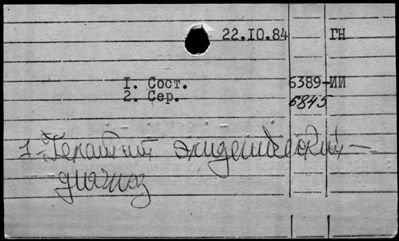 22.10.84 ГН
1. Сост. 6389-ИИ
2. Сер. 5845
1-Гепатит эпидемический-
диагноз